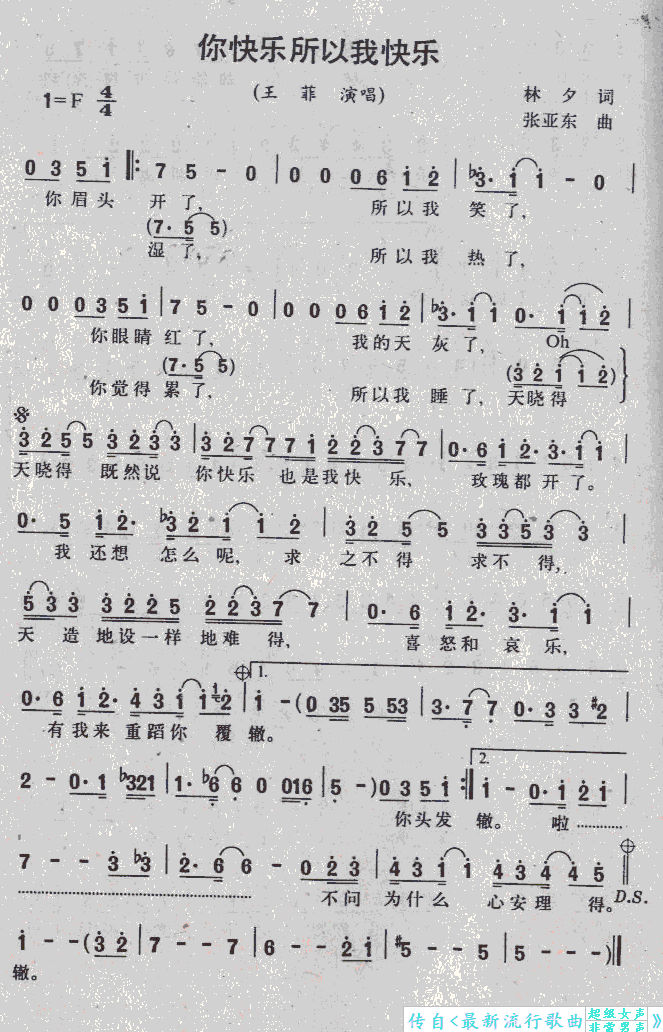 你快乐所以我快乐
(王 菲 演唱)
1=F 4/4
林 夕 词
张亚东 曲
0 3 5 i ‖: 7 5 - 0 | 0 0 0 6 i 2 | b3· i i - 0 |
你眉头 开了, 所以我 笑了,
(7· 5 5)
湿了, 所以我 热了,
0 0 0 3 5 i | 7 5 - 0 | 0 0 0 6 i 2 | b3· i i 0· i i 2 |
你眼睛 红了, 我的天 灰了, Oh
(7· 5 5) (3 2 i i 2)
你觉得 累了, 所以我 睡了, 天晓得
3 2 5 5 3 2 3 3 | 3 2 7 7 7 7 i 2 2 3 7 7 | 0· 6 i 2· 3· i i |
天晓得 既然说 你快乐 也是我快 乐, 玫瑰都开了。
0· 5 i 2· b3 2 i i 2 | 3 2 5 5 3 3 5 3 3 |
我 还想 怎么呢, 求 之不得 求不得,
5 3 3 3 2 2 5 2 2 3 7 7 | 0· 6 i 2· 3· i i |
天 造 地设一样 地难 得, 喜 怒和 哀乐,
1.
0· 6 i 2· 4 3 i i 2 | i - (0 35 5 53 | 3· 7 7 0· 3 3 #2 |
有我来 重蹈你 覆 辙。
2.
2 - 0· 1 b321 | 1· b6 6 0 016 | 5 - ) 0 3 5 i :‖ i - 0· i 2 i |
你头发 辙。 啦…………
7 - - 3 b3 | 2· 6 6 - 0 2 3 | 4 3 i i 4 3 4 4 5 ‖
………………………… 不问 为什么 心安理 得。D.S.
i - - (3 2 | 7 - - 7 | 6 - - 2 i | #5 - - 5 | 5 - - -)‖
辙。
传自<最新流行歌曲 超级女声 非常男声》